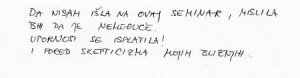 DA NISAM IŠLA NA OVAJ SEMINAR, MISLILA
BIH DA JE NEMOGUĆE.
UPORNOST SE ISPLATILA!
I PORED SKEPTICIZMA MOJIH BLIŽNJIH...